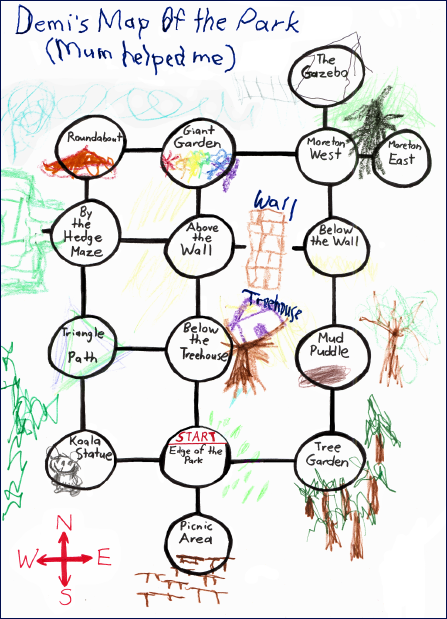 Demi's Map Of the Park
(Mum helped me)
The
Gazebo
Roundabout
Giant
Garden
Moreton
West
Moreton
East
By
the
Hedge
Maze
Above
the
Wall
Wall
Below
the Wall
Triangle
Path
Below
the
Treehouse
Treehouse
Mud
Puddle
Koala
Statue
START
Edge of the
Park
Tree
Garden
Picnic
Area
N
W E
S